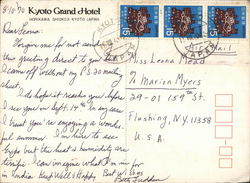 8/18/70
Kyoto Grand Hotel
HORIKAWA SHIOKOJI KYOTO JAPAN
Dear Leona:
Forgive me for not sending
this greeting direct to you I
came off without my P.S. 20 mailing
sheet.
I do hope it reaches you before
I see you on Sept. 14th. In any case
I trust you're enjoying a wonder-
ful summer. I'm here to see
Expo but the heat & humidity are
terrific. I can imagine what I'm in for
in India. Keep Well & Happy.
Best Wishes
15
15
15
KYOTO
JAPAN
Air Mail
Miss Leona Mead
% Marion Myers
29-01 159th St.
Flushing, N.Y. 11358
U.S.A.